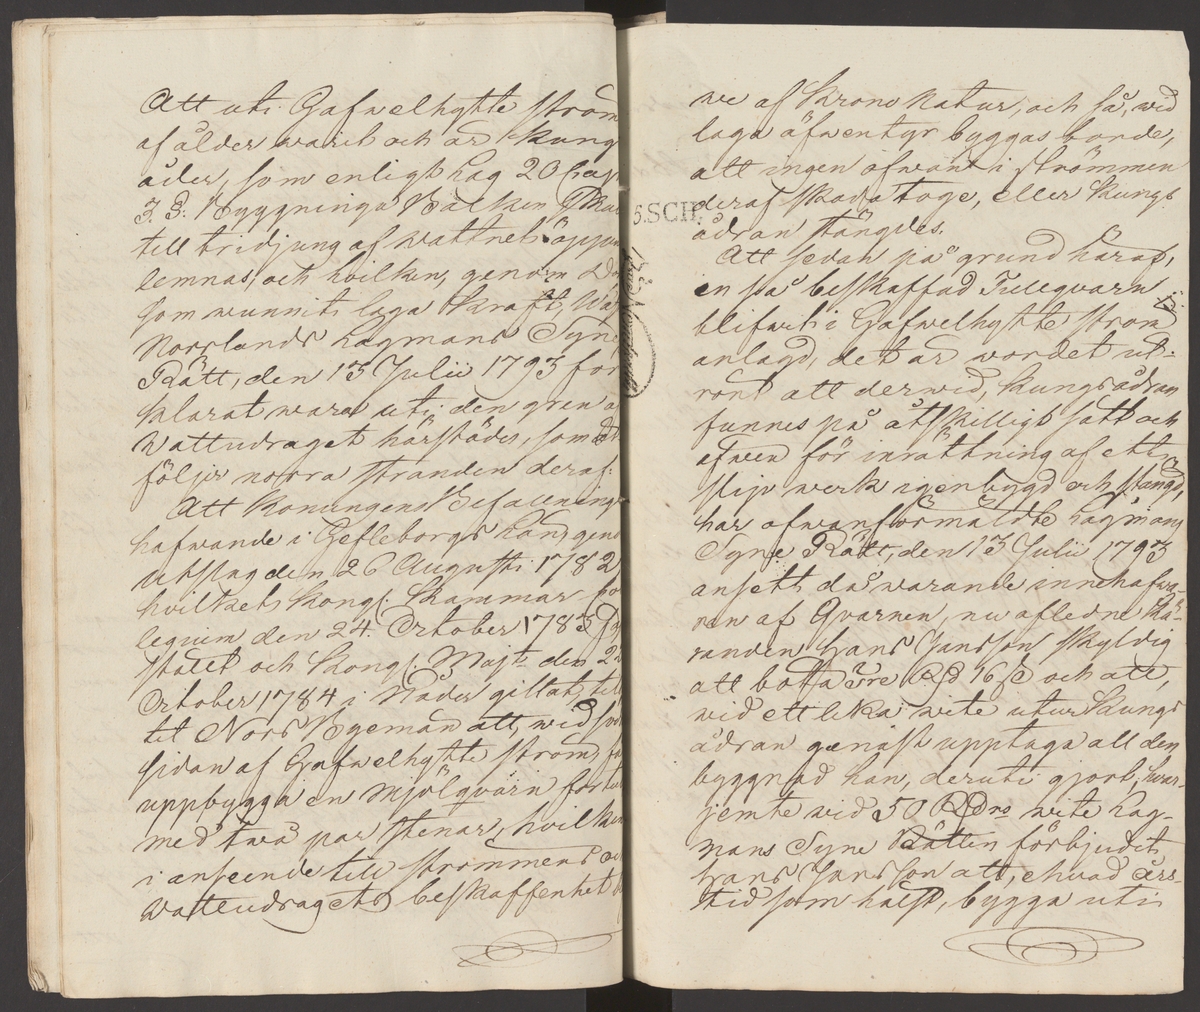 Att uti Gafwelhytte ström
af ålder warit och är Kungs
åder, som enligt Lag 20 Cap:
3. §. Byggninga Balken skal
till tridjung af wattnets öppen
lemnas, och hvilken, genom Dom
som wunnit laga kraft, Wäs
Norrlands Lagmans Syne
Rätt, den 13 Julii 1793 för
klarat wara uti den gren af
Wattudraget härstädes, som
följer norra stranden deraf:
Att Konungens Befallnings
hafwande i Gefleborgs Län genom
Utslag den 26 Augusti 1782
hvilket Kongl. Kammar Col
legium den 24. October 1783
stält och Kongl. Majt. den 22
October 1784 i Nåder gillat, till
tet Nors Byemän att, wid södra
sidan af Gafwelhytte ström, få
uppbygga en Mjölqvarn för tull
med två par stenar, hvilken
i anseende till strömmens och
Wattudragets beskaffenhet
we af Krono Natur, och så, wid
laga äfwentyr byggas borde,
att ingen ofwant i strömmen
deraf skada toge, eller Kungs
ådran stängdes.
Att sedan på grund häraf,
en så beskaffad Tullqvarn
blifwit i Gafwelhytte ström
anlagd, det är wordet ut-
rönt att derwid, Kungsådran
funnes på åtskilligt sätt och
äfwen för inrättning af ett
slip werk igenbygd och stängd,
har ofwanförmäldte Lagmans
Syne Rätt, den 13 Julii 1793
ansett då warande innehafwa-
ren af Qvarnen, nu aflidne Kä-
randen Hans Jansson skyldig
att botta Tre Rd 16 s och att,
wid ett lika wite utur Kungs
ådran genast upptaga all den
byggnad han, deruti gjort, hwar-
jemte wid 50 Rdrs wite Lag-
mans Syne Rätten förbjudit
Hans Jansson att, ehvad års-
tid som hälst, bygga uti